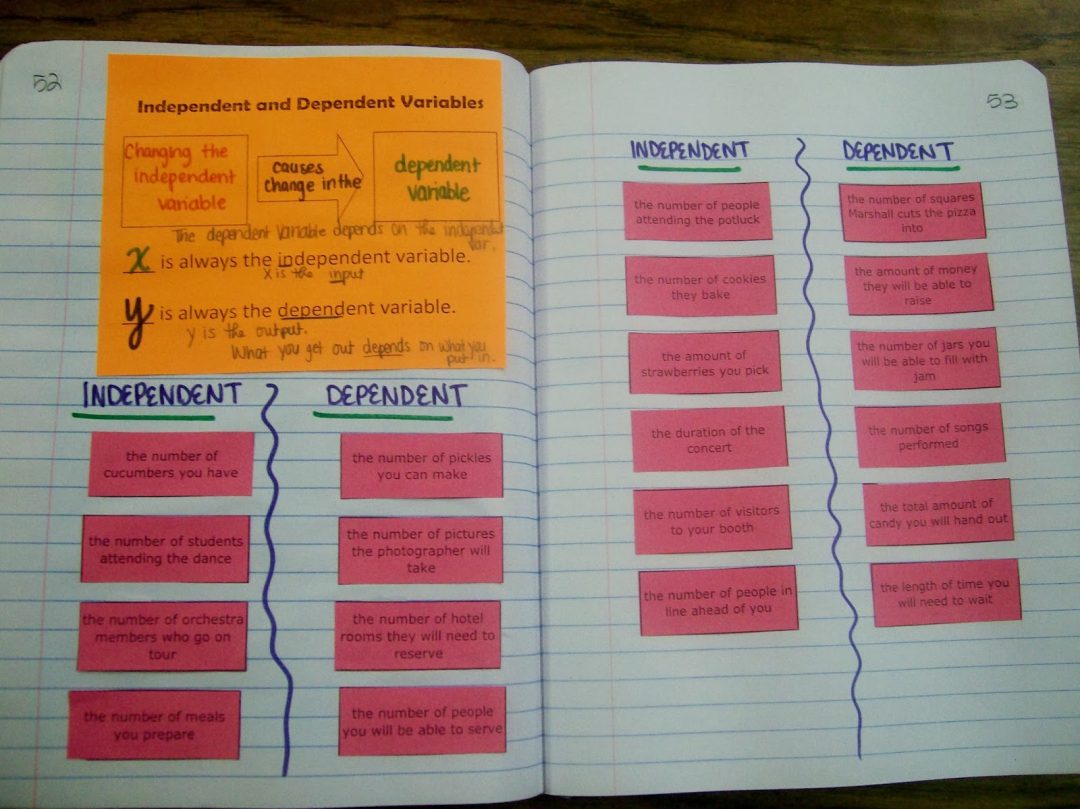 52
Independent and Dependent Variables
Changing the
independent
variable
causes
change in the
dependent
variable
The dependent variable depends on the independent
var.
x is always the independent variable.
x is the input
y is always the dependent variable.
y is the output.
What you get out depends on what you
put in.
INDEPENDENT
DEPENDENT
the number of
cucumbers you have
the number of pickles
you can make
the number of students
attending the dance
the number of pictures
the photographer will
take
the number of orchestra
members who go on
tour
the number of hotel
rooms they will need to
reserve
the number of meals
you prepare
the number of people
you will be able to serve
53
INDEPENDENT
DEPENDENT
the number of people
attending the potluck
the number of squares
Marshall cuts the pizza
into
the number of cookies
they bake
the amount of money
they will be able to
raise
the amount of
strawberries you pick
the number of jars you
will be able to fill with
jam
the duration of the
concert
the number of songs
performed
the number of visitors
to your booth
the total amount of
candy you will hand out
the number of people in
line ahead of you
the length of time you
will need to wait